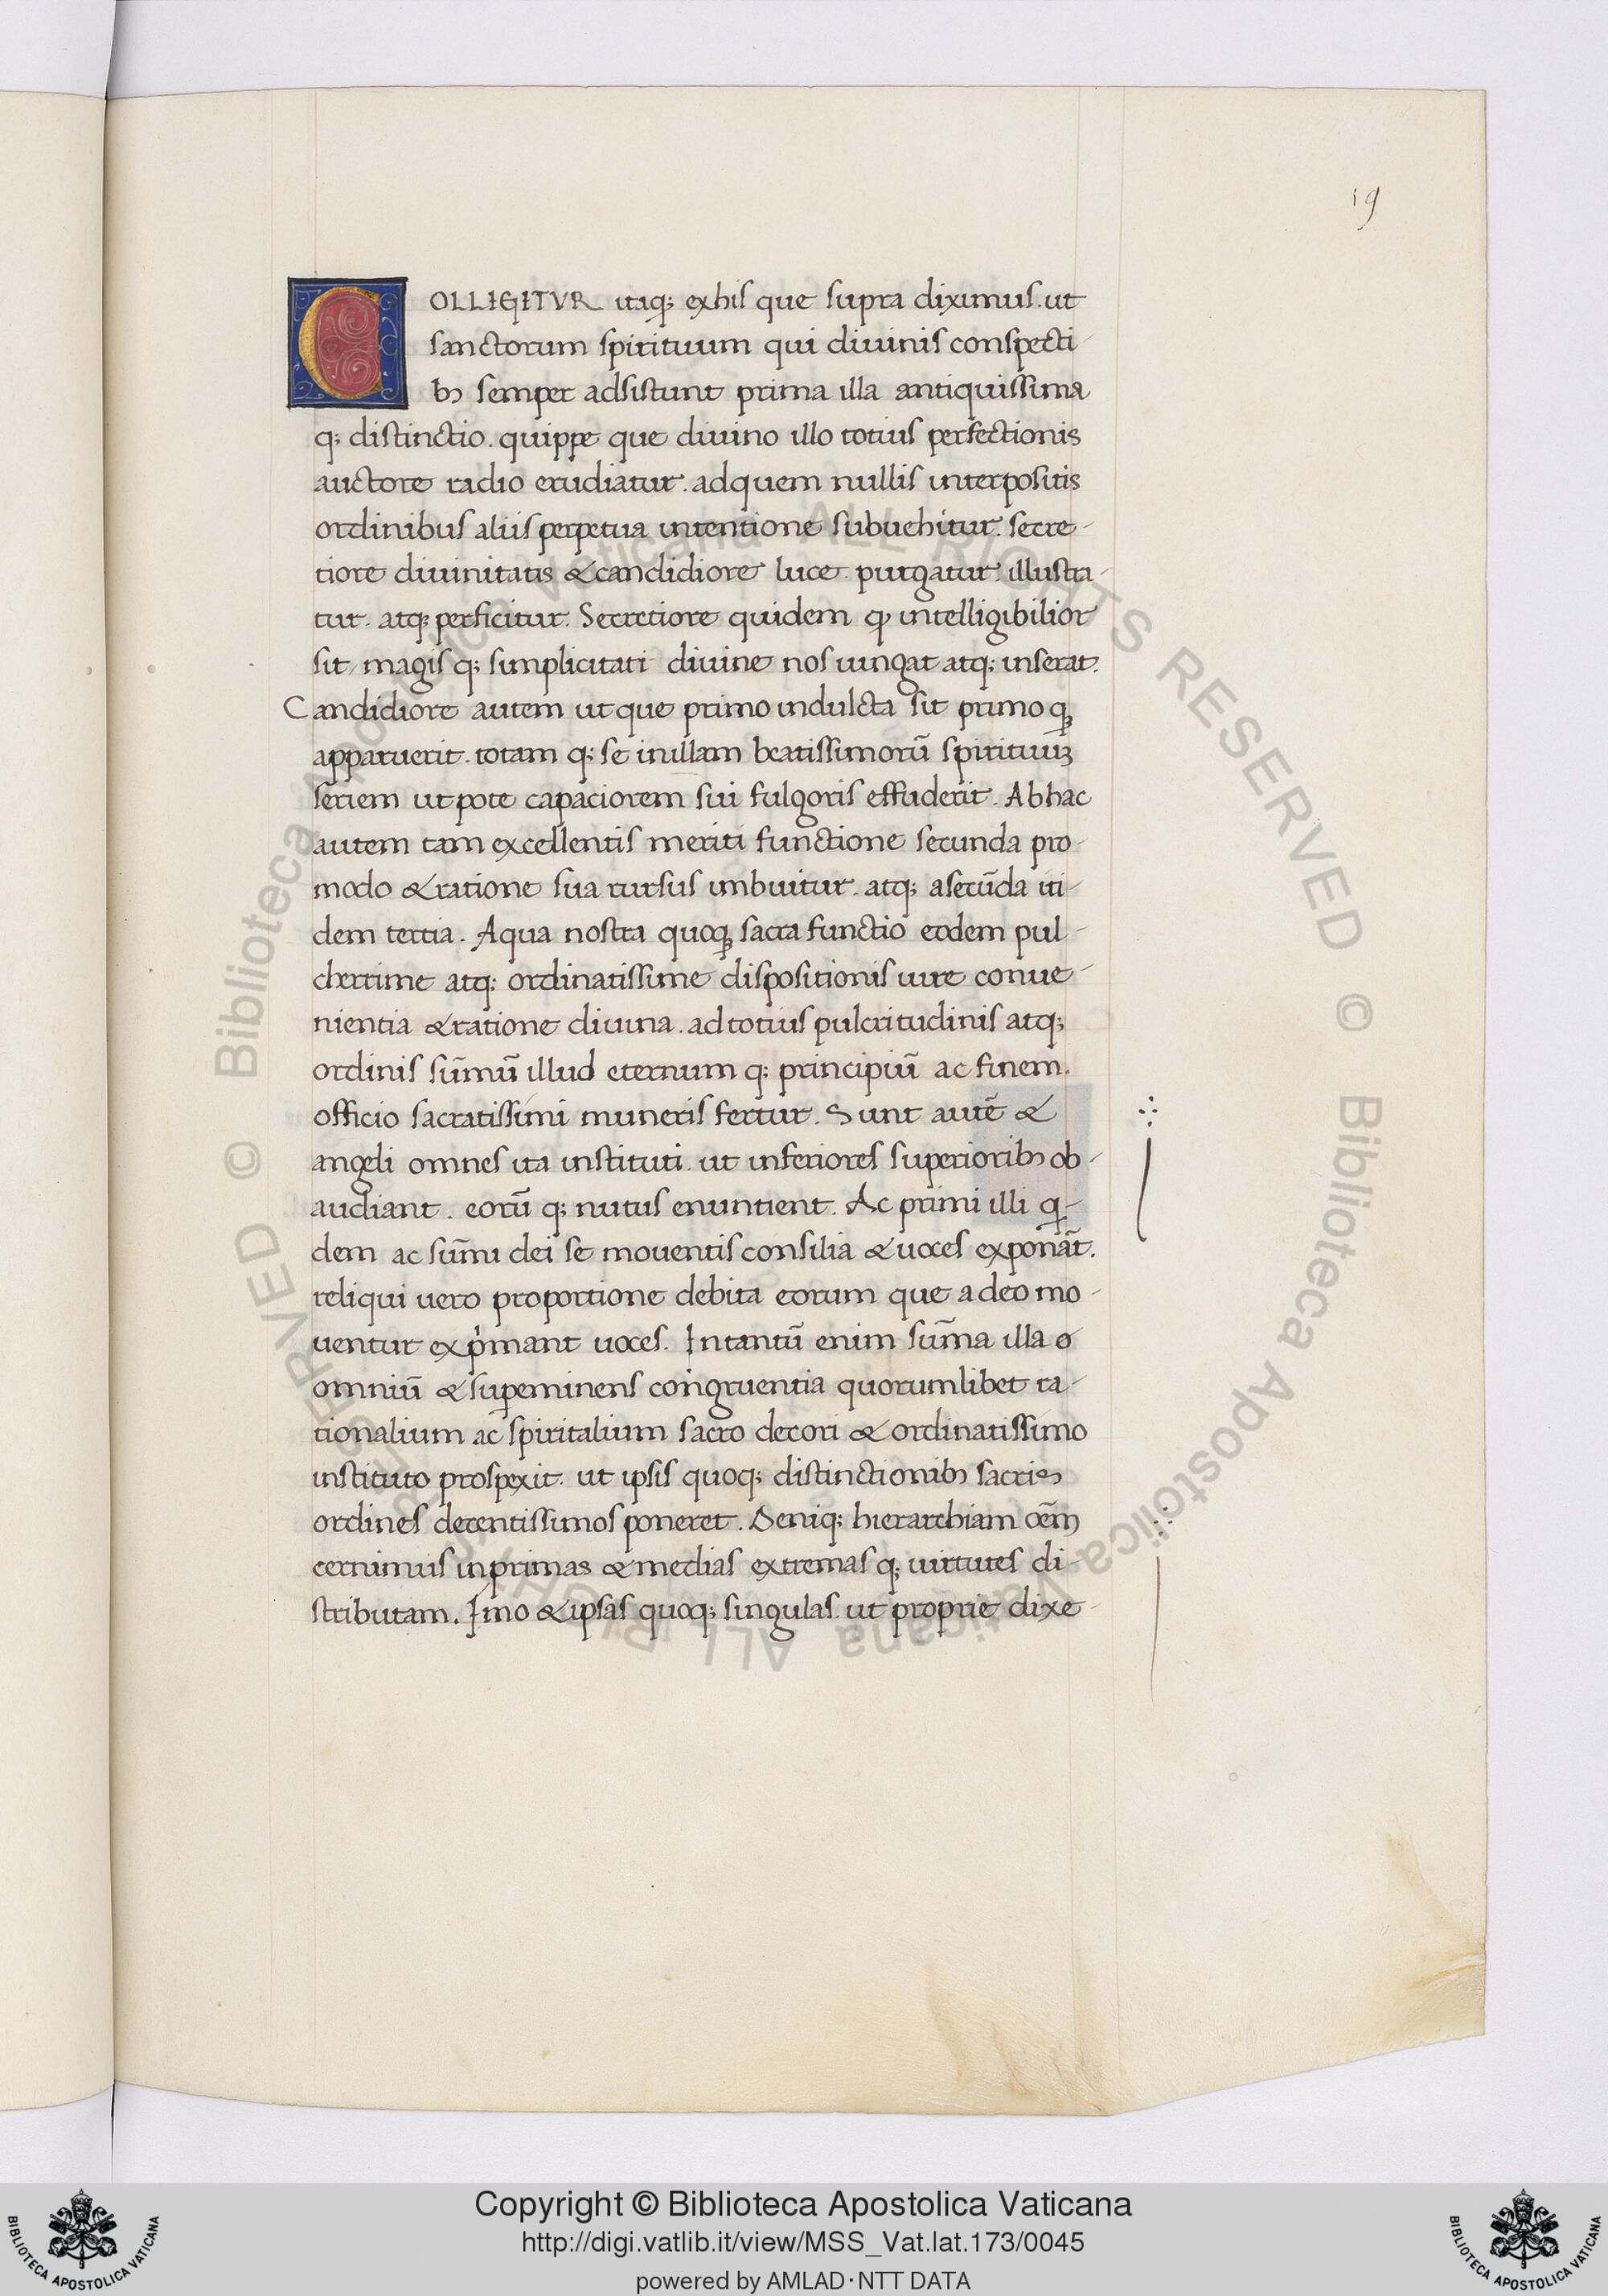 19
COLLIGITVR itaq; exhis que supra diximus. ut
sanctorum spirituum qui diuinis conspecti-
bꝫ semper adsistunt prima illa antiquissima
q; distinctio. quippe que diuino illo totius perfectionis
auctore radio erudiatur. adquem nullis interpositis
ordinibus aliis perpetua intentione subuehitur. secre-
tiore diuinitatis &candidiore luce. purgatur. illustra-
tur. atq; perficitur. Secretiore quidem ꝙ intelligibilior
sit, magis q; simplicitati diuine nos iungat atq; inserat.
Candidiore autem ut que primo indulcta sit primo qꝫ
apparuerit. totam q; se inillam beatissimorū spirituuꝫ
seriem ut pote capaciorem sui fulgoris effuderit. Abhac
autem tam excellentis meriti functione secunda pro-
modo &ratione sua rursus imbuitur. atq; asecūda iti-
dem tertia. Aqua nostra quoqꝫ sacra functio eodem pul-
cherrime atq; ordinatissime dispositionis iure conue-
nientia &ratione diuina. adtotius pulcritudinis atq;
ordinis sūmū illud eternum q; principiū ac finem.
officio sacratissimi muneris fertur. Sunt autē &
angeli omnes ita instituti. ut inferiores superioribꝫ ob-
audiant. eorū q; nutus enuntient. Ac primi illi q-
dem ac sūmi dei se mouentis consilia &uoces exponāt.
reliqui uero proportione debita eorum que adeo mo-
uentur expͥmant uoces. Intantū enim sūma illa o
omniū &supeminens congruentia quorumlibet ra-
tionalium ac spiritalium sacro decori &ordinatissimo
instituto prospexit. ut ipsis quoq; distinctionibꝫ sacris
ordines decentissimos poneret. Deniq; hierarchiam oēm
cernimus inprimas &medias extremas q; uirtutes di-
stributam. Imo &ipsas quoq; singulas. ut proprie dixe-
© Biblioteca Apostolica Vaticana ALL RIGHTS RESERVED © Biblioteca Apostolica Vaticana ALL RIGHTS RESERVED
Copyright © Biblioteca Apostolica Vaticana
http://digi.vatlib.it/view/MSS_Vat.lat.173/0045
powered by AMLAD·NTT DATA
BIBLIOTECA APOSTOLICA VATICANA
BIBLIOTECA APOSTOLICA VATICANA